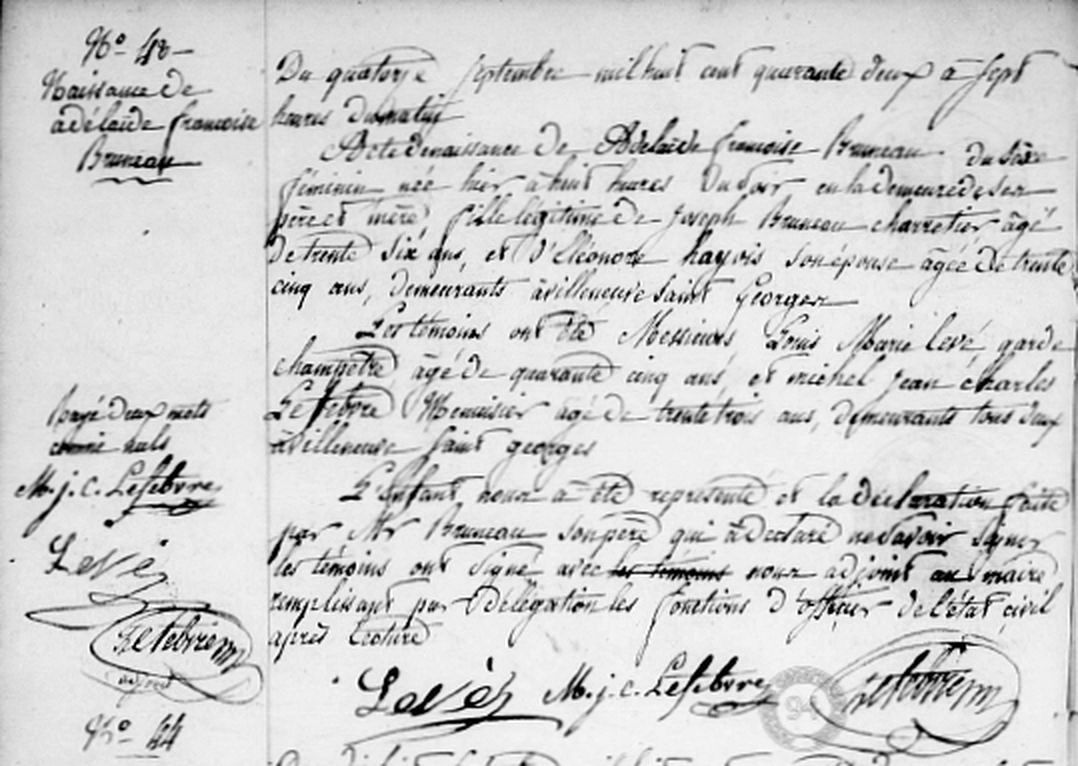 Nº 48
Naissance de
adélaïde francoise
Bruneau
Du quatorze septembre mil huit cent quarante deux à sept
heures du matin
Acte de naissance de Adélaïde francoise Bruneau du sèxe
féminin née hier à huit heures du soir en la demeure de ses
père et mère, fille légitime de joseph Bruneau charretier âgé
de trente six ans, et d'Eléonore hayois son épouse agée de trente
cinq ans, demeurants à villeneuve saint Georges
Les témoins ont été Messieurs Louis Marie levé, garde
champêtre âgé de quarante cinq ans, et michel jean charles
Lefebvre Menuisier âgé de trente trois ans, demeurants tous deux
à villeneuve saint georges
L'enfant nous a été représenté et la déclaration faite
par Mr Bruneau son père qui a déclaré ne savoir signer
les témoins ont signé avec les témoins nous adjoint au maire
remplissant par délégation les fonctions d'officier de l'état civil
après lecture
rayé deux mots
comme nuls
M. j. c. Lefebvre
Levé
Lefebvre
adjoint
Levé M. j. c. Lefebvre Lefebvre
94
Nº 44